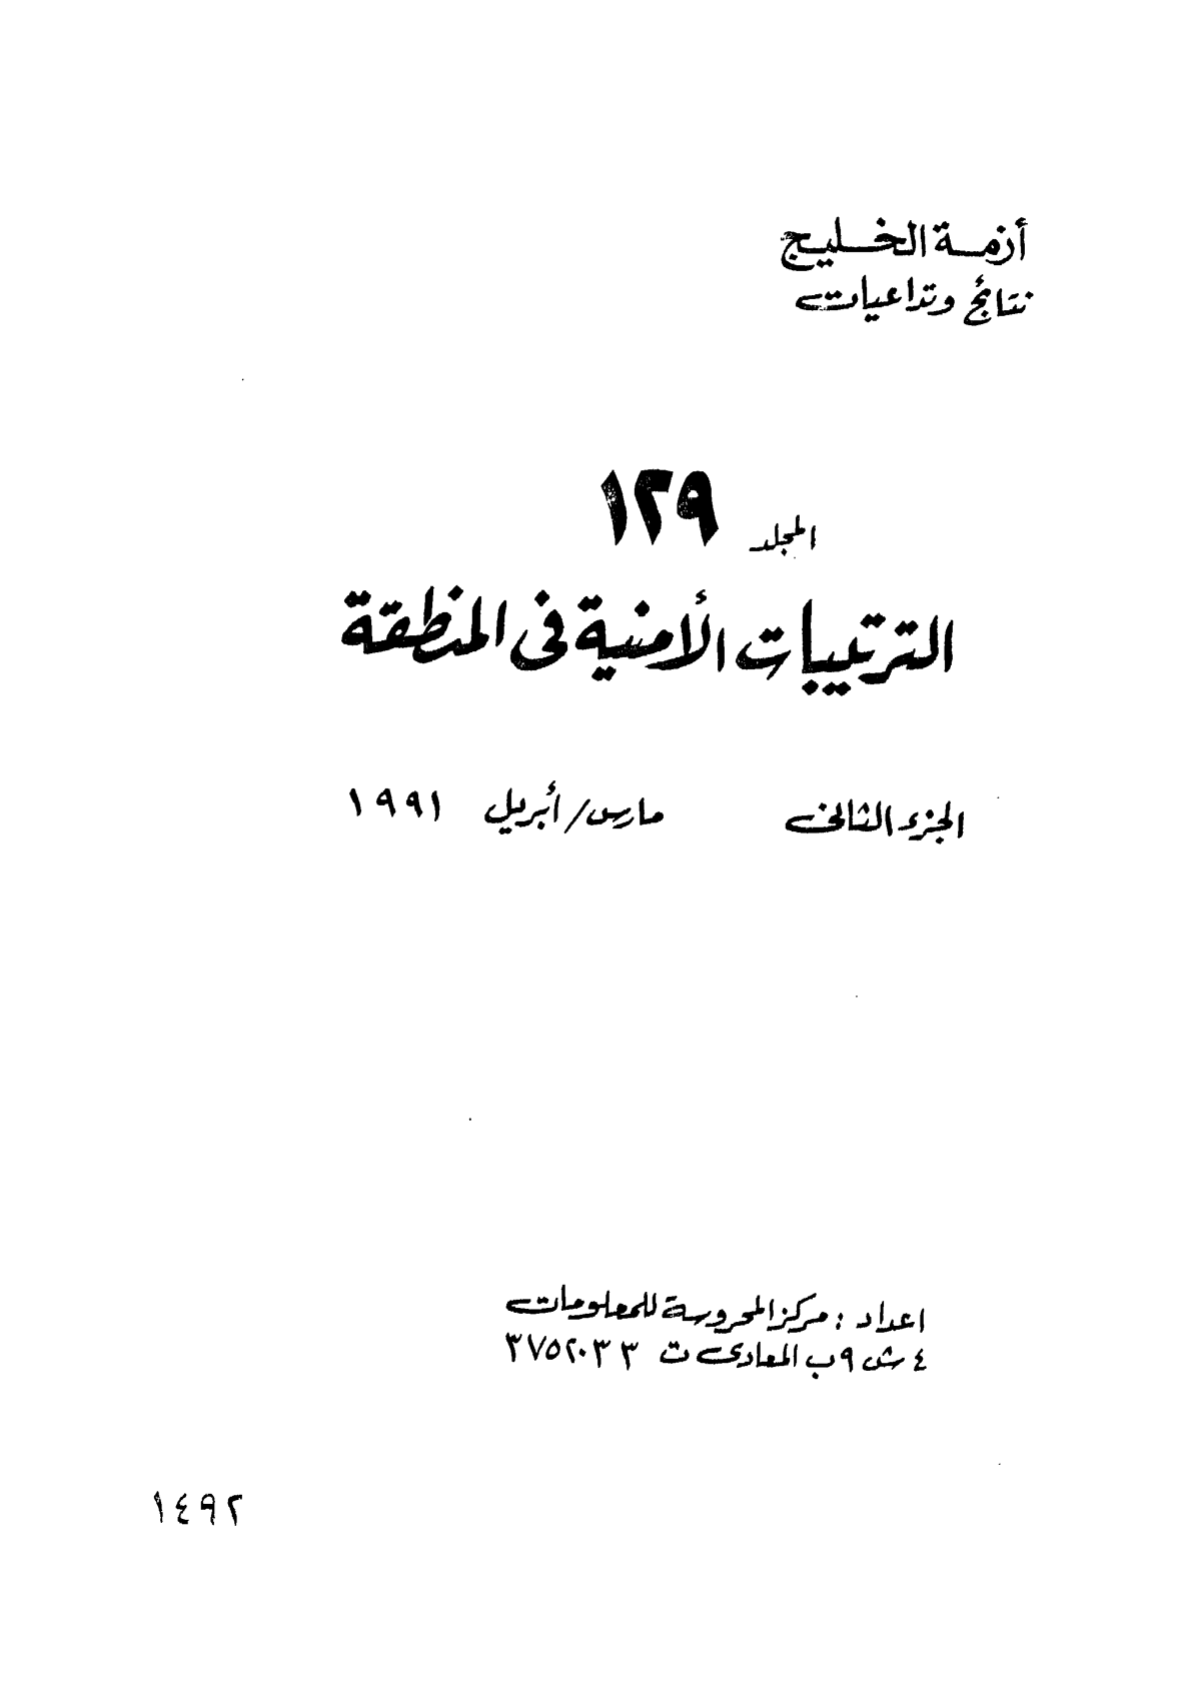 أزمة الخليج
نتائج وتداعيات
المجلد ١٢٩
الترتيبات الأمنية فى المنطقة
الجزء الثانى مارس/أبريل ١٩٩١
اعداد : مركز المحروسة للمعلومات
٤ ش ٩ب المعادى ت ٣٧٥٢٠٣٣
١٤٩٢